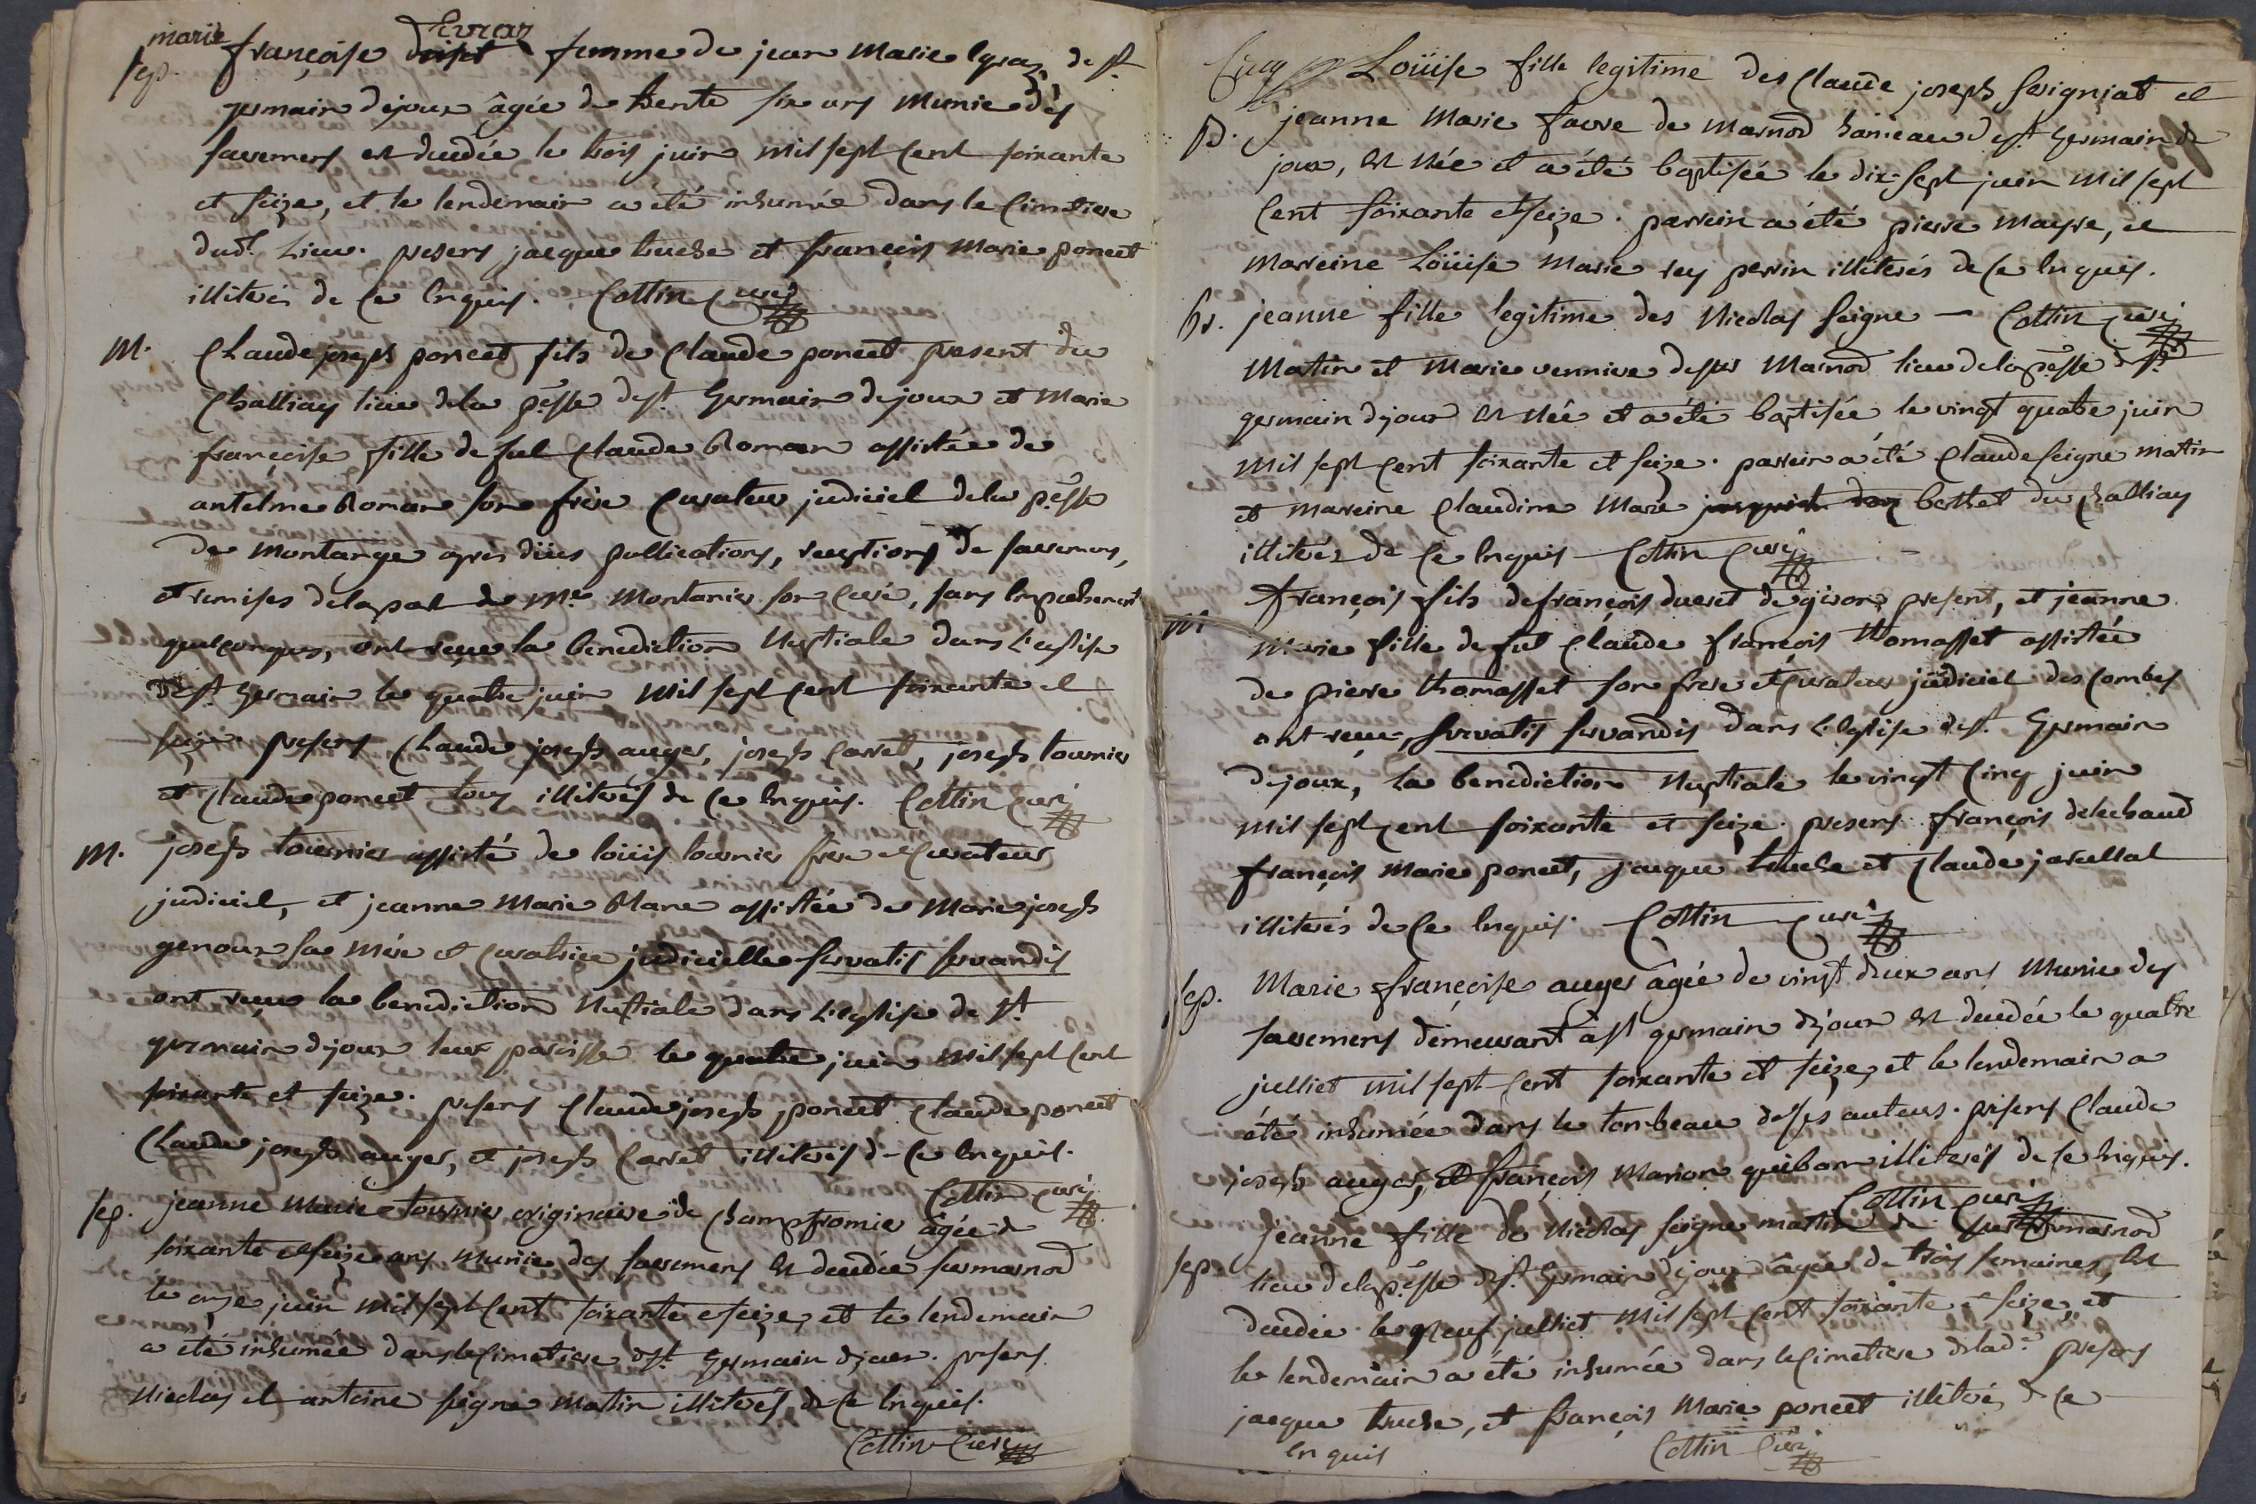 marie Evraz
sep. françoise femme de jean marie de st
germain dejoux âgée de trente six ans munie des
sacremens est decedée le trois juin mil sept cent soixante
et seize, et le lendemain a été inhumée dans le cimetiere
dud.t lieu. presens jacque truche et françois marie poncet
illiterés de ce enquis. Cottin curé
M. Claude joseph poncet fils de claude poncet present du
Challiay lieu dela p.sse de st. Germain dejoux et marie
françoise fille de fut claude Roman assistée de
antelme Roman son frère curateur judiciel dela p.sse
de montange après dües publications, receptions de sacremens,
et remises delapart de m.re montanier son curé, sans empechement
quelconques, ont reçue la benediction nuptiale dans l'eglise
de st. Germain le quatre juin mil sept cent soixante et
seize. presens Claude joseph auger, joseph Carret, joseph tournier
et claude poncet tous illiterés de ce enquis. Cottin curé
M. joseph tournier assisté de loüis tournier frere et curateur
judiciel, et jeanne marie Blanc assistée de marie joseph
genoux sa mére et curatrice judicielle servatis servandis
ont reçue la benediction nuptiale dans l'eglise de st.
germain dejoux leur paroisse le quatre juin mil sept cent
soixante et seize. presens claude joseph poncet claude poncet
Claude joseph auger, et joseph Carret illiterés de ce enquis.
Cottin curé
sep. jeanne marie tournier originaire de champfromier âgée de
soixante et seize ans munie des sacremens est decedée sur marnod
le onze juin mil sept cent soixante et seize, et le lendemain
a été inhumée dans le cimetiere de st. Germain dejoux. presens
nicolas et antoine seigne martin illiterés de ce enquis.
Cottin curé
Loüise fille legitime des claude joseph et
b. jeanne marie favre de marnod hameau de st. germain de
joux, est née et a été baptisée le dix-sept juin mil sept
cent soixante et seize. parrein a été pierre mayre, et
marreine Loüise marie rey perrin illiterés de ce enquis.
b. jeanne fille legitime des nicolas seigne — Cottin curé
martin et marie vernivre de sur marnod lieu dela p.sse de st
germain dejoux est née et a été baptisée le vingt quatre juin
mil sept cent soixante et seize. parrein a été claude seigne martin
et marreine claudine marie berthet du challiay
illiterés de ce enquis Cottin curé
M. françois fils de françois ducret de giron present, et jeanne
marie fille de fut claude françois thomasset assistée
de pierre thomasset son frere et curateur judiciel des combes
ont reçue, servatis servandis dans l'eglise de st. Germain
dejoux, la benediction nuptiale le vingt cinq juin
mil sept cent soixante et seize. presens françois delechaud
françois marie poncet, jacque truche et claude
illiterés de ce enquis. Cottin curé
sep. Marie françoise auger âgée de vingt deux ans munie des
sacremens demeurant à st germain dejoux est decedée le quatre
julliet mil sept cent soixante et seize, et le lendemain a
été inhumée dans le tombeau de ses auteurs. presens claude
joseph auger, et françois marion illiterés de ce enquis.
Cottin curé
sep. jeanne fille de nicolas seigne martin de sur marnod
lieu dela p.sse de st. germain dejoux âgée de trois semaines, est
decedée le neuf julliet mil sept cent soixante et seize, et
le lendemain a été inhumée dans le cimetiere delad.te presens
jacque truche, et françois marie poncet illiterés de ce
enquis Cottin curé